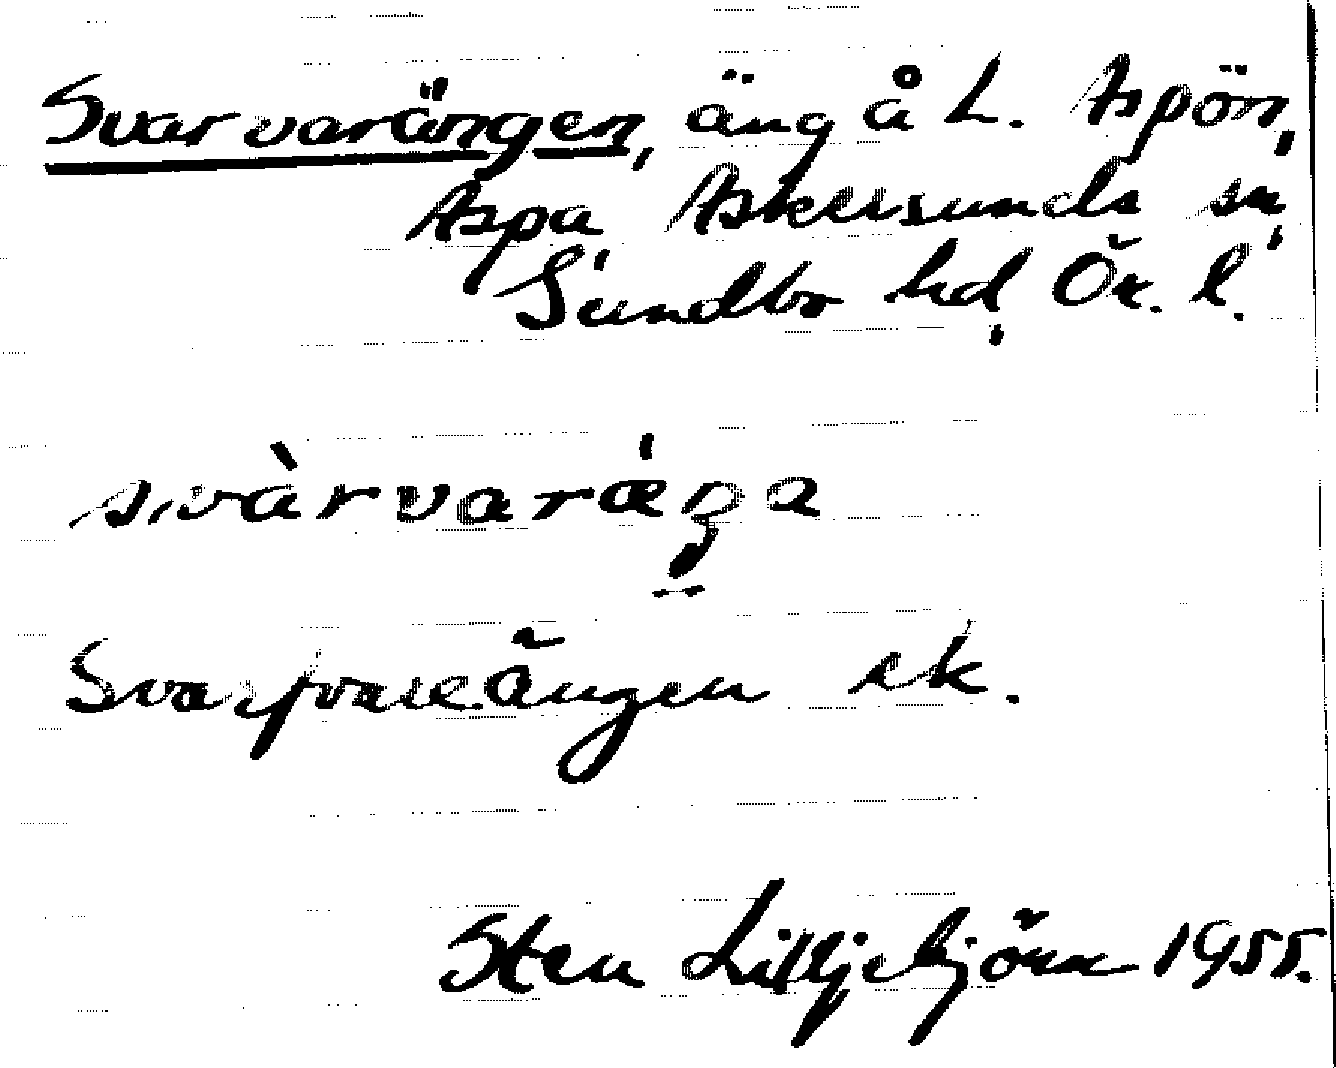 Svarvarängen, äng å L. Aspön,
Aspa Askersunds sn,
Sundbo hd, Ör. l.
svàrvaræ´ŋa
Svarfvareängen ek.
Sten Lilljebjörn 1955.